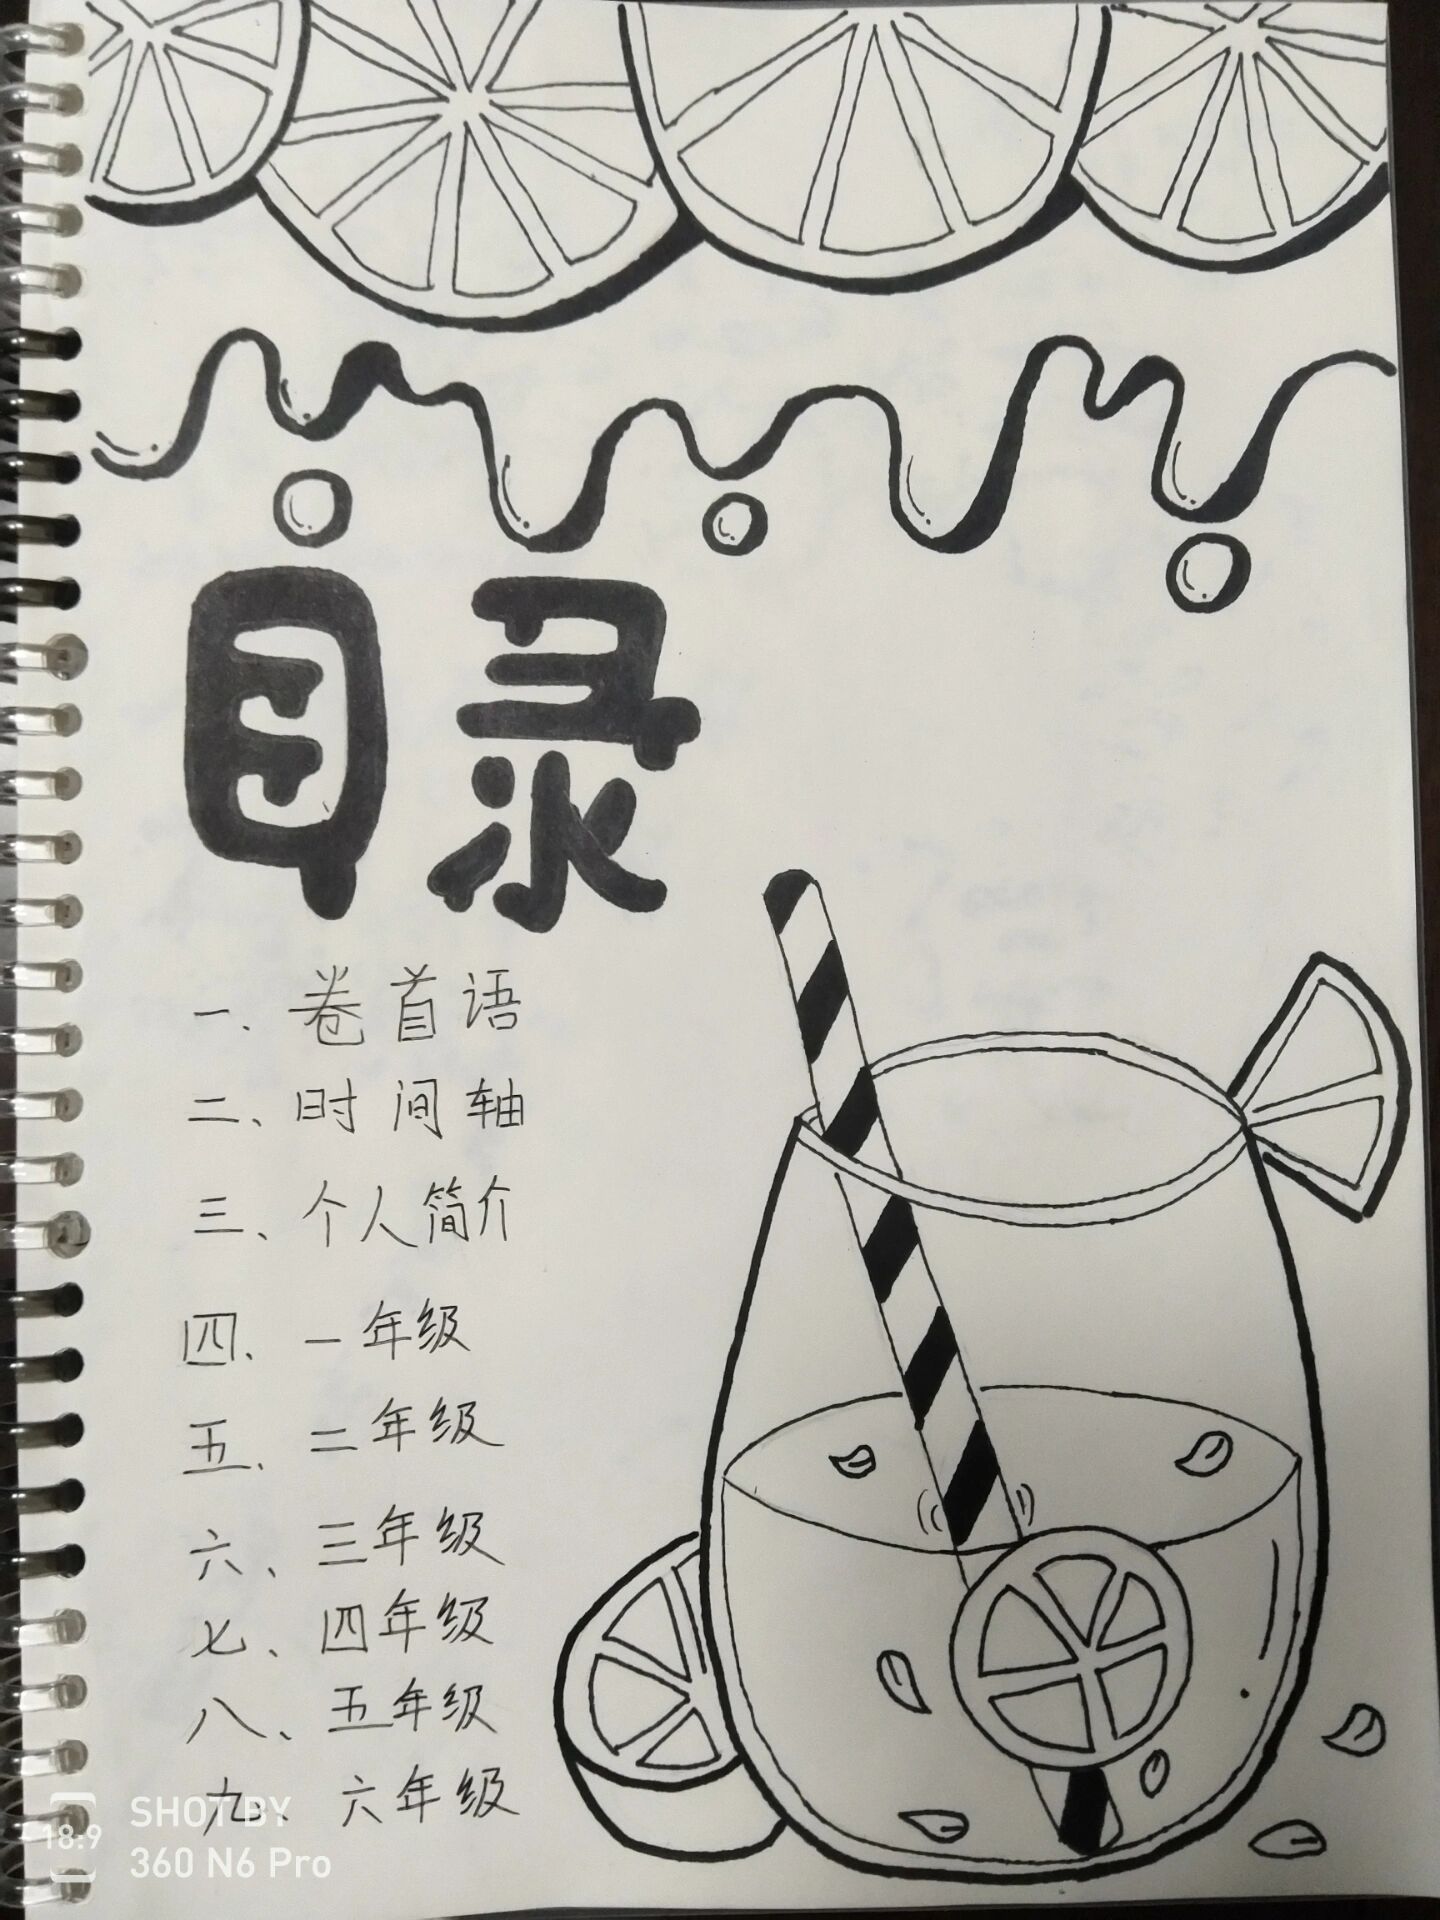 目录
一、卷首语
二、时间轴
三、个人简介
四、一年级
五、二年级
六、三年级
七、四年级
八、五年级
九、六年级
18:9
SHOT BY
360 N6 Pro